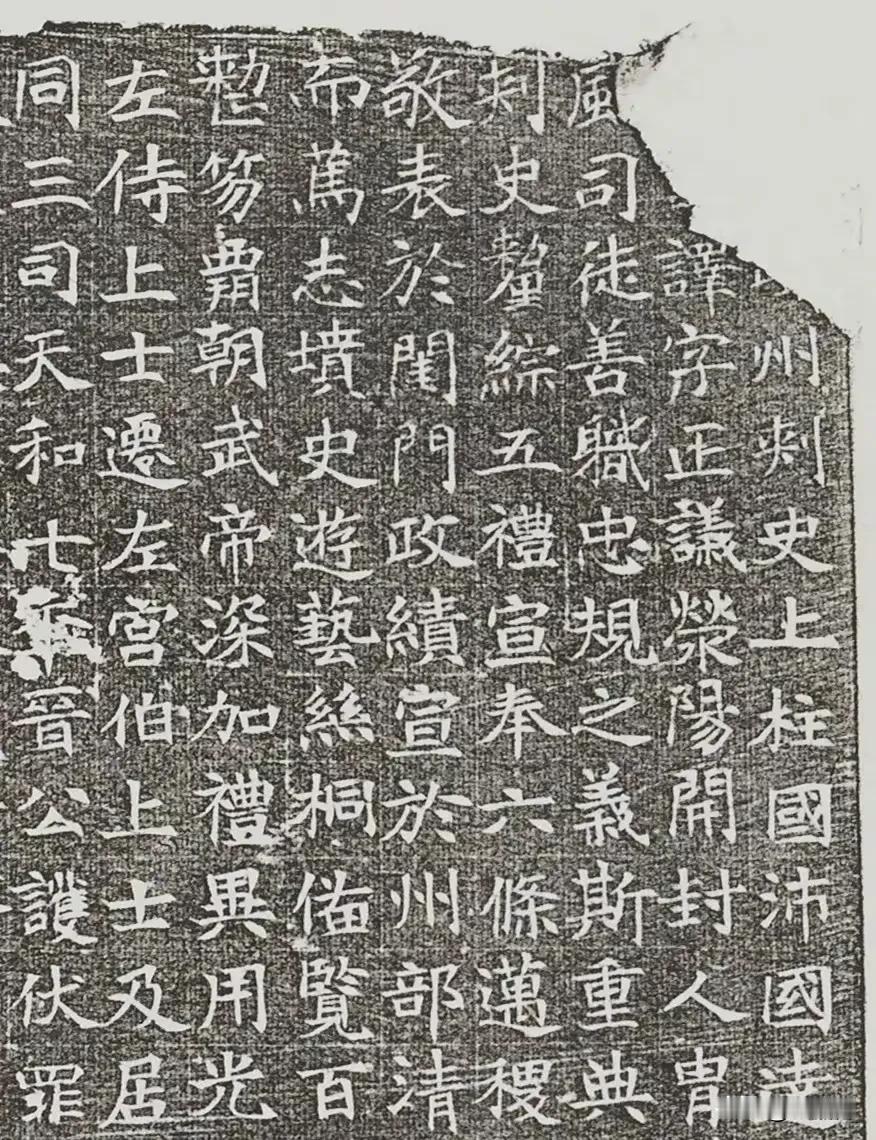 州刾史上柱國沛國達
譯字正議滎陽開封人冑
風司徒善職忠規之義斯重典
刾史釐綜五禮宣奉六條邁稷
敬表於閨門政績宣於州部清
而篤志墳史遊藝絲桐俻覽百
整笏肅朝武帝深加禮異用光
左侍上士遷左宮伯上士及居
同三司天和七年晉公護伏罪